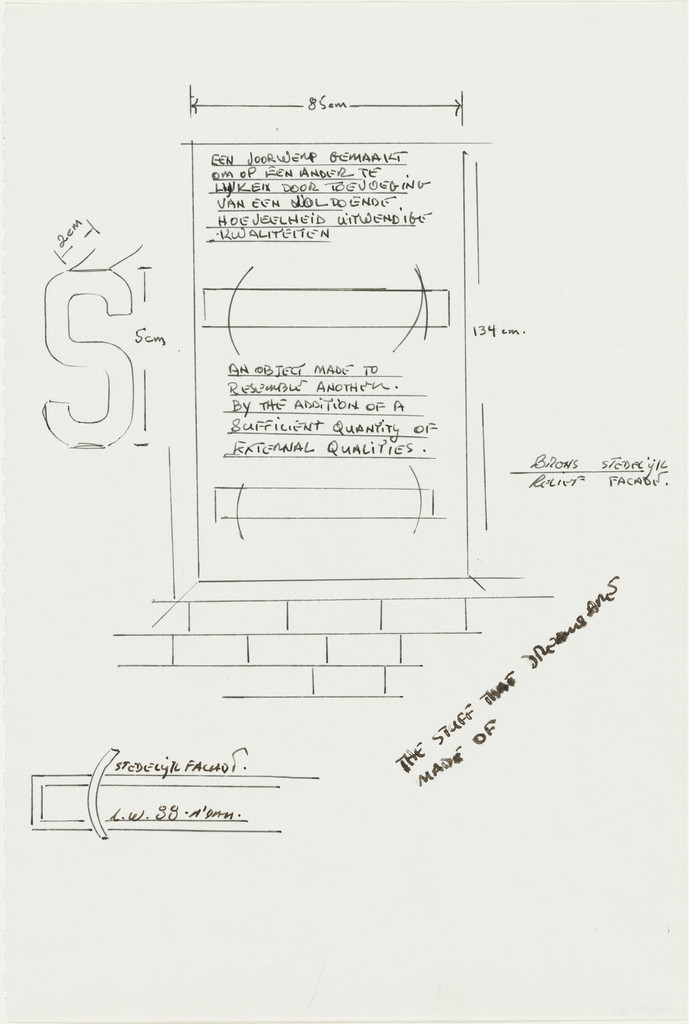 85cm
EEN VOORWERP GEMAAKT
OM OP EEN ANDER TE
LIJKEN DOOR TOEVOEGING
VAN EEN VOLDOENDE
HOEVEELHEID UITWENDIGE
KWALITEITEN
2cm
S
5cm
134 cm.
AN OBJECT MADE TO
RESEMBLE ANOTHER.
BY THE ADDITION OF A
SUFFICIENT QUANTITY OF
EXTERNAL QUALITIES.
BRONS STEDELIJK
RELIEF FACADE.
THE STUFF THAT DREAMS ARE
MADE OF
STEDELIJK FACADE.
L.W. 88 · A'DAM.